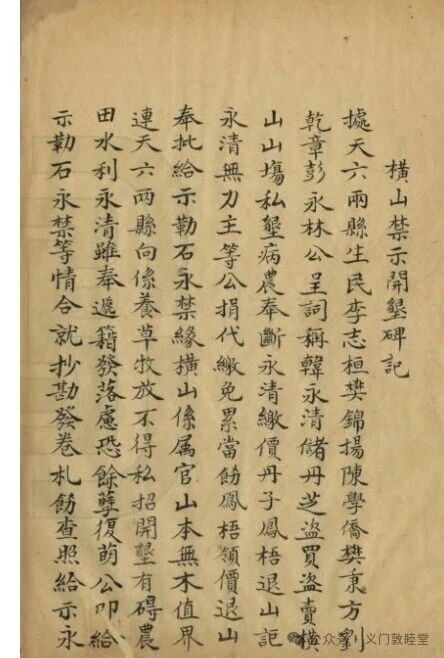 橫山禁示開墾碑記
據天六兩縣生民李志桓樊錦揚陳學僑樊秉方劉
乾章彭永林公呈詞稱韓永清儲丹芝盜買盜賣橫
山山塲私墾病農奉斷永清繳價丹子鳳梧退山記
永清無力主等公捐代繳免累當飭鳳梧領價退山
奉批給示勒石永禁緣橫山係属官山本無木值界
連天六兩縣向係養草牧放不得私招開墾有碍農
田水利永清雖奉遞籍發落慮恐餘孽復萌公叩給
示勒石永禁等情合就抄勘發卷札飭查照給示永
公众号·义门敦睦堂